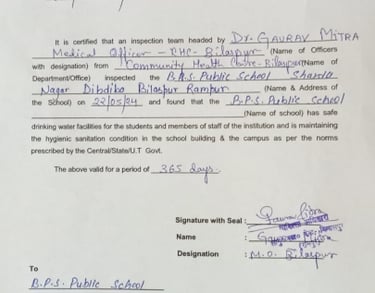 It is certified that an inspection team headed by Dr. GAURAV MITRA
Medical Officer - CHC - Bilaspur (Name of Officers
with designation) from Community Health Centre - Bilaspur (Name of
Department/Office) inspected the B.P.S. Public School Sharda
Nagar Dibdiba Bilaspur Rampur (Name & Address of
the School) on 22/05/24 and found that the B.P.S. Public School
(Name of school) has safe
drinking water facilities for the students and members of staff of the institution and is maintaining
the hygienic sanitation condition in the school building & the campus as per the norms
prescribed by the Central/State/U.T Govt.
The above valid for a period of 365 days
Signature with Seal :
Name : Gaurav Mitra
Designation : M.O. Bilaspur
To
B.P.S. Public School